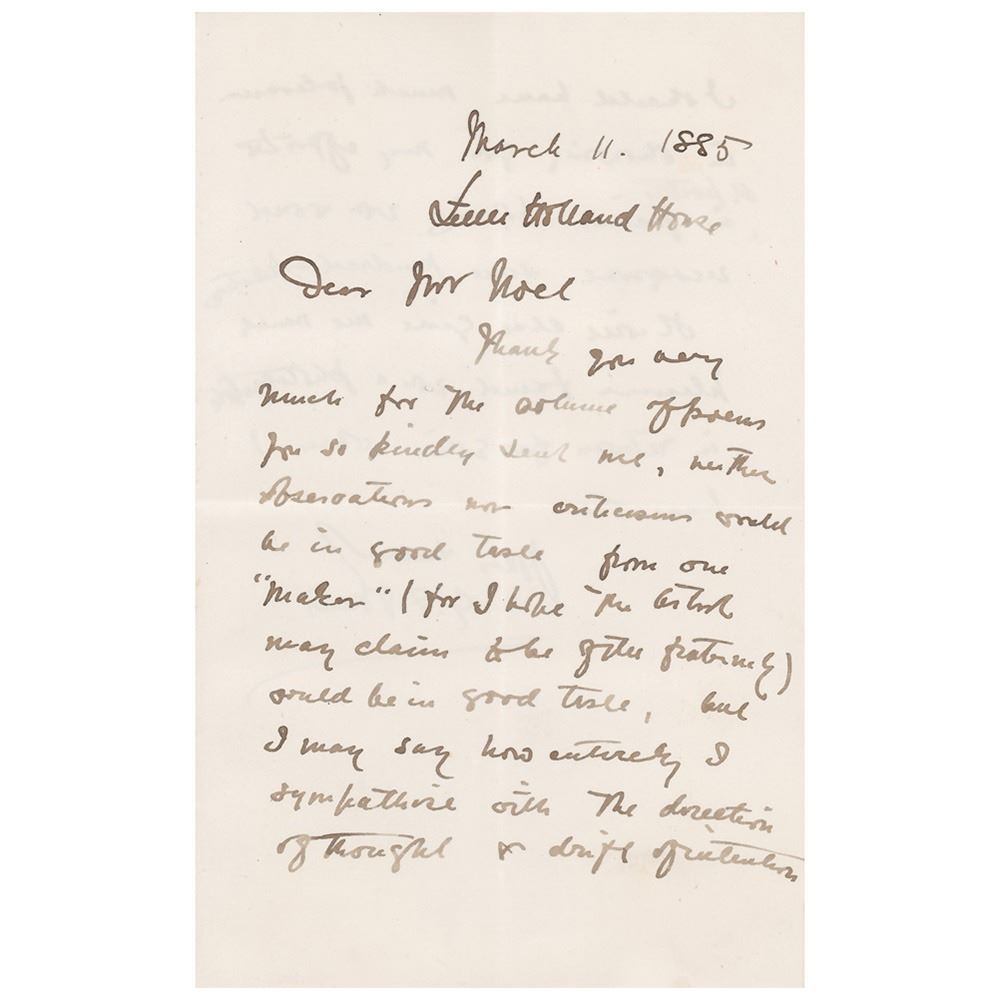 March 11. 1885
Little Holland House
Dear Mr Noel
Thank you very
much for the volume of poems
you so kindly sent me, neither
observations nor criticisms would
be in good taste from one
"maker" (for I hope the artist
may claim to be of the fraternity)
would be in good taste, but
I may say how entirely I
sympathise with the direction
of thought & drift of intention